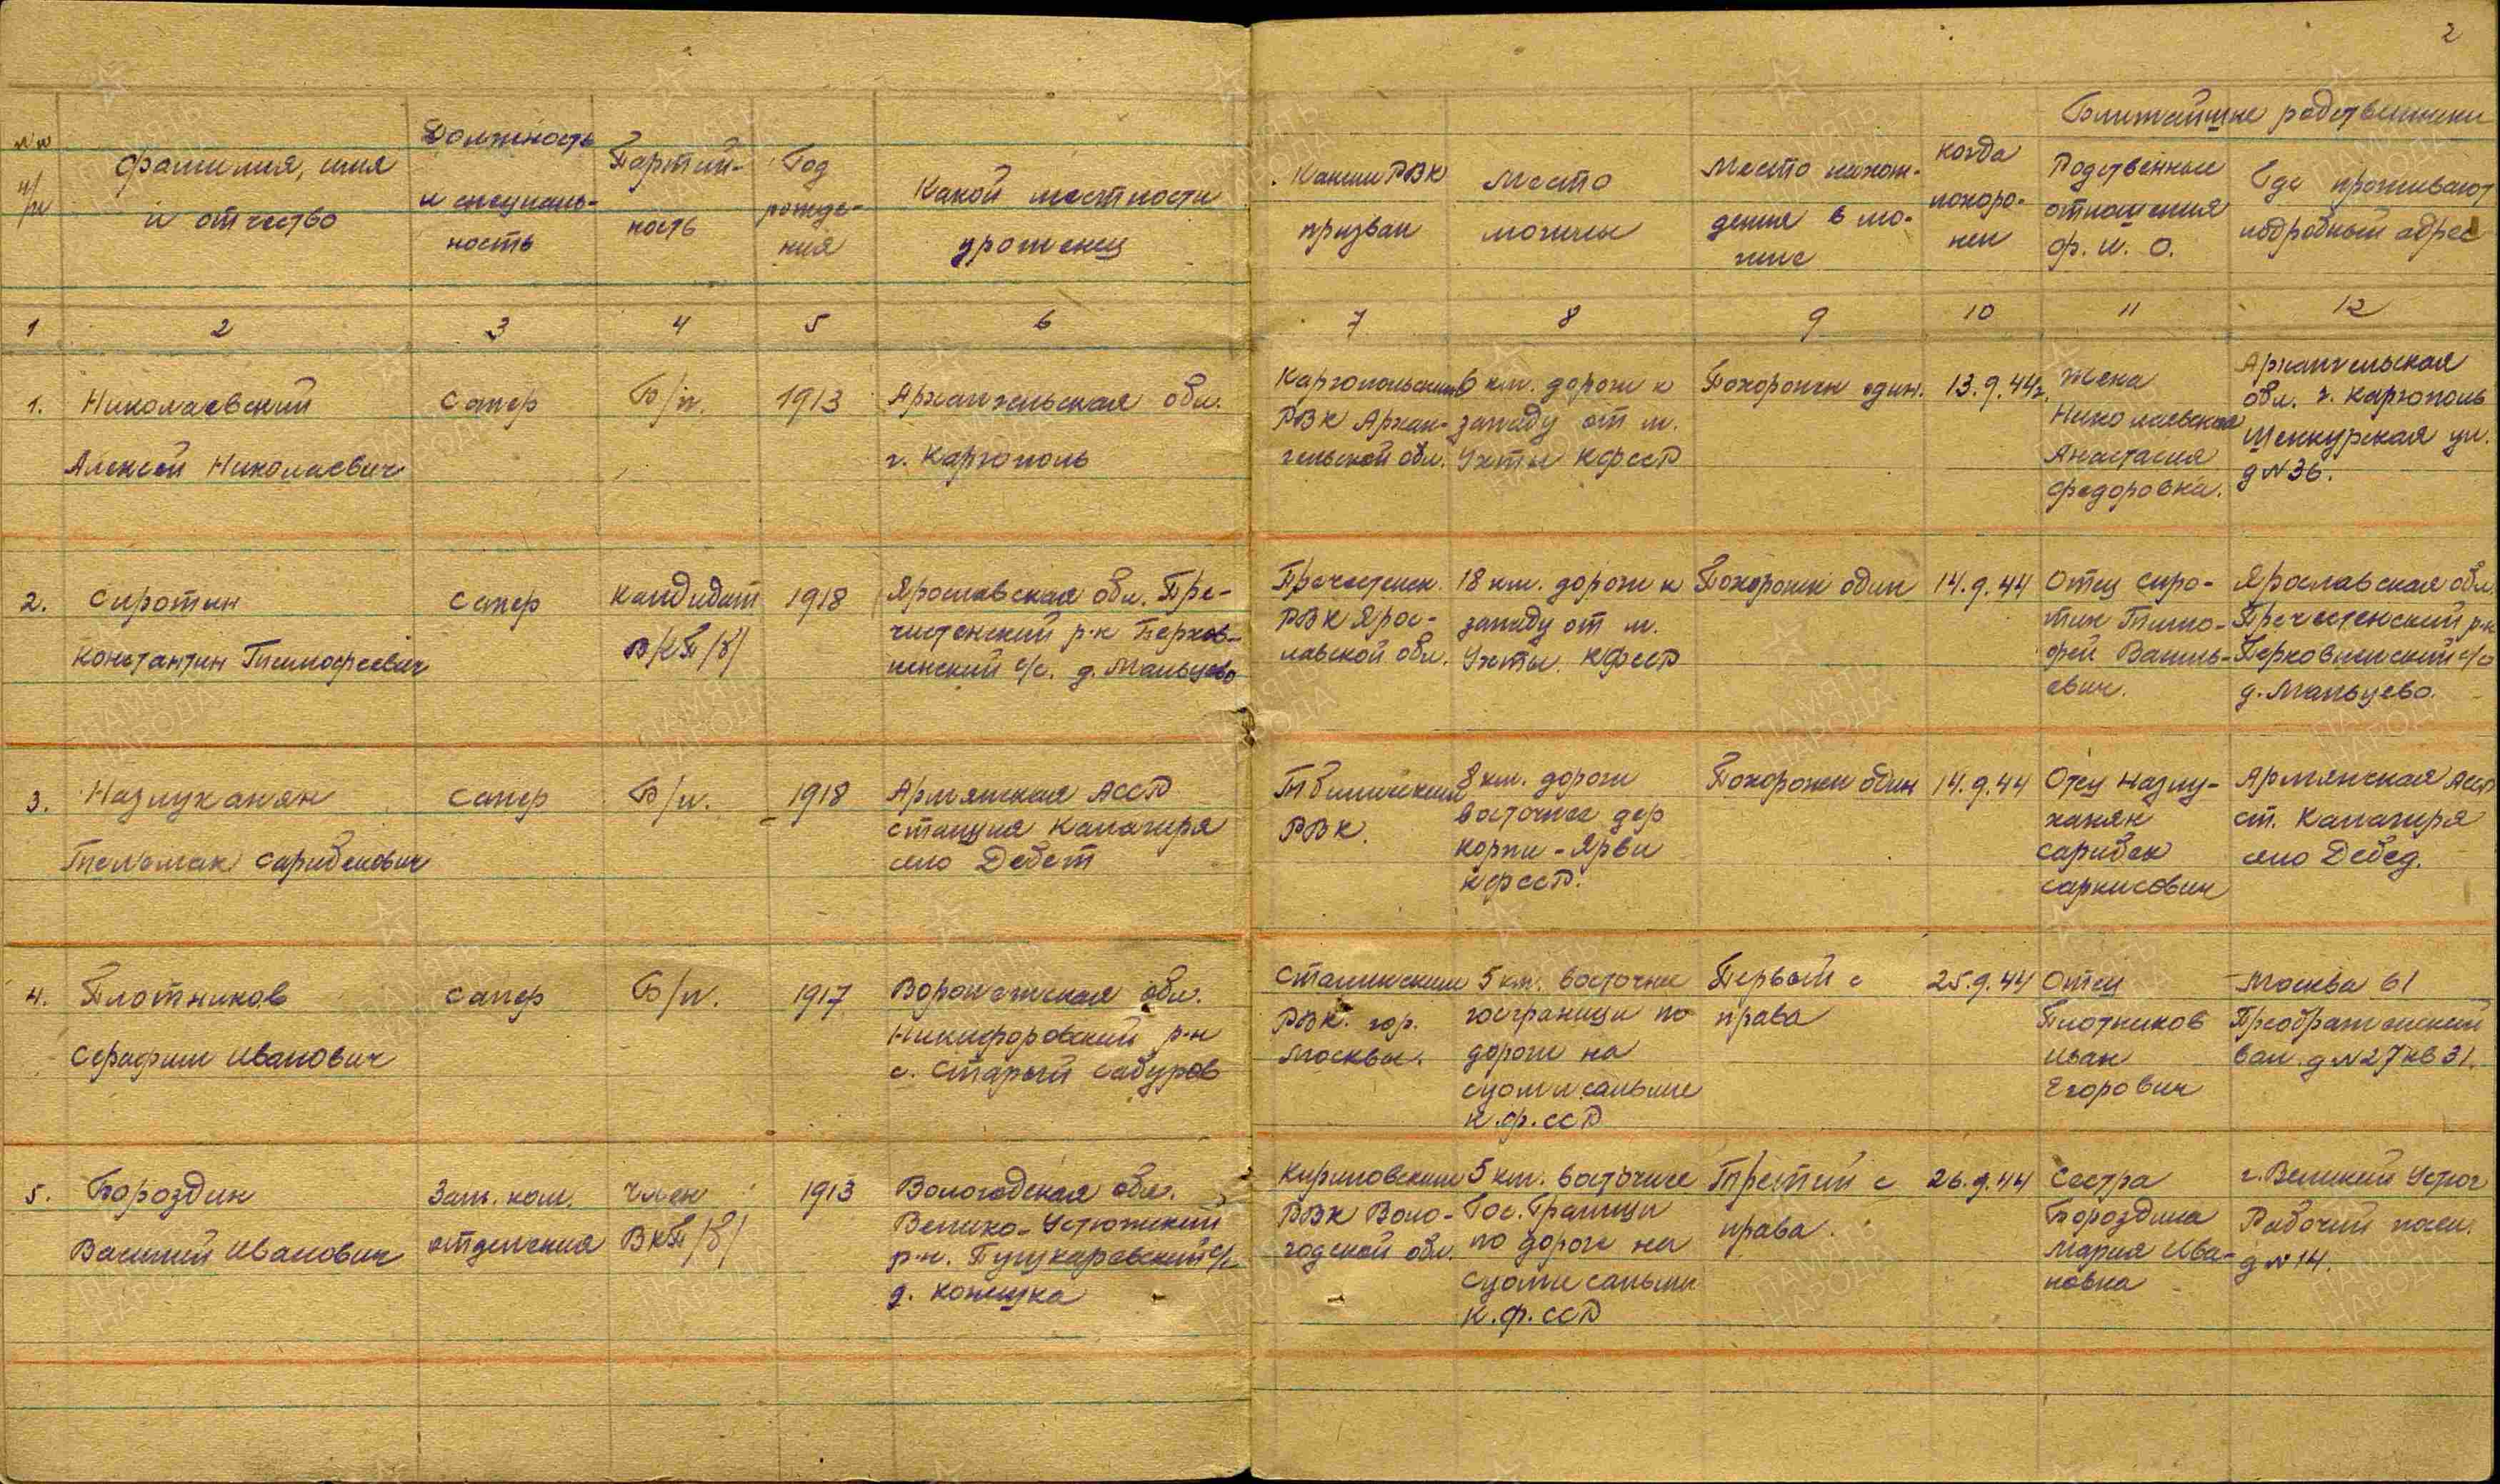 2
№№ п/п
Фамилия, имя и отчество
Должность и специальность
Партий-
ность
Год
рожде-
ния
Какой местности
уроженец
Каким РВК
призван
Место
могилы
Место нахож-
дения в мо-
гиле
когда
похоро-
нен
Ближайшие родственники
Родственные
отношения
ф. и. о.
Где проживают
подробный адрес
1 2 3 4 5 6 7 8 9 10 11 12
1.
Николаевский
Алексей Николаевич
сапер
Б/п.
1913
Архангельская обл.
г. Каргополь
Каргопольским
РВК Архан-
гельской обл.
6 км. дороги к
западу от м.
Ухты КФССР
Похоронен один.
13.9.44г.
Жена
Николаевская
Анастасия
Федоровна.
Архангельская
обл. г. Каргополь
Шенкурская ул.
д №36.
2.
Сиротин
Константин Тимофеевич
сапер
кандидат
В/КП/б/
1918
Ярославская обл. Пре-
чистенский р-н
с/с. д. Мальцево
Пречистенск.
РВК Ярос-
лавской обл.
18 км. дороги к
западу от м.
Ухты. КФССР
Похоронен один
14.9.44
Отец Сиро-
тин Тимо-
фей Василь-
евич.
Ярославская обл.
Пречестенский р-н
с/с
д. Мальцево.
3.
Назлуханян
Сарибекович
сапер
Б/п.
1918
Армянская АССР
станция Калагиря
село Дебет
Тбилисским
РВК.
8 км. дороги
восточнее дер
Корпи-Ярви
КФССР.
Похоронен один
14.9.44
Отец Назлу-
ханян
Сарибек
Саркисович
Армянская АССР
ст. Калагиря
село Дебед.
4.
Плотников
Серафим Иванович
сапер
Б/п.
1917
Воронежская обл.
Никифоровский р-н
с. Старый Сабуров
Сталинским
РВК. гор.
Москвы.
5 км. восточне
госграници по
дороге на
суоми сальми
К.Ф.ССР
Первый с
права
25.9.44
Отец
Плотников
Иван
Егорович
Москва 61
Преображенский
вал. д №27 кв 31.
5.
Бороздин
Василий Иванович
Зам. ком.
отделения
член
ВКП/б/
1913
Вологодская обл.
Велико-Устюжский
р-н. с/с
д.
Кириловским
РВК Воло-
годской обл.
5 км. восточнее
Гос. Границы
по дороге на
суоми сальми
К.Ф.ССР
Третий с
права.
26.9.44
Сестра
Бороздина
Мария Ива-
новна
г. Великий Устюг
Рабочий посел.
д №14.